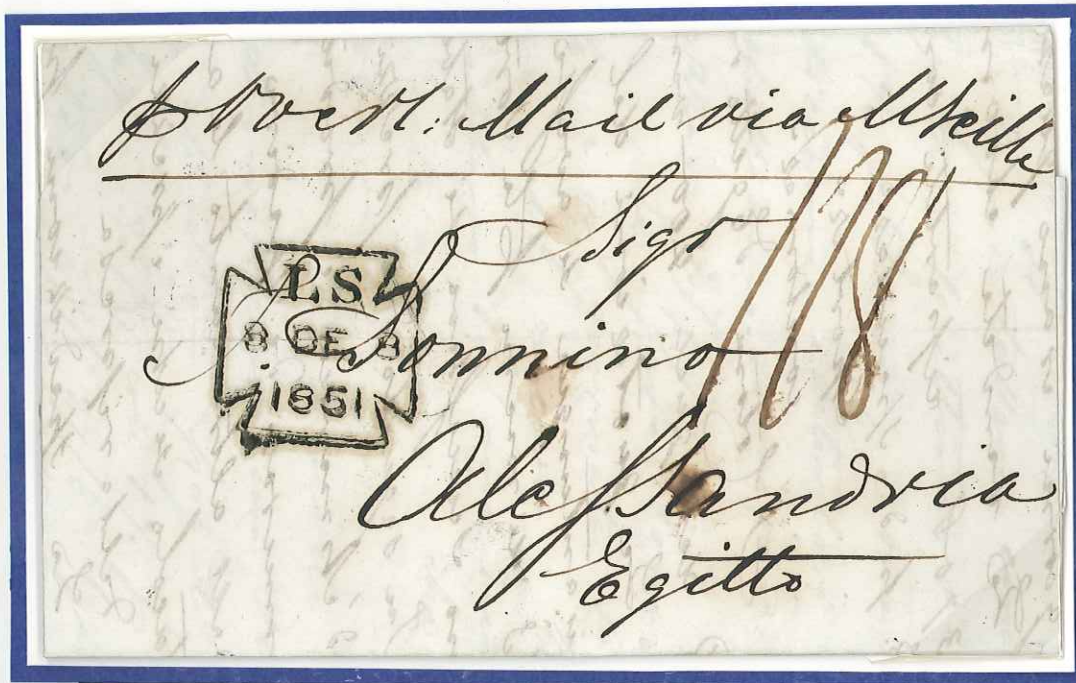 p Overl: Mail via Mseille
Sigr
1/8
LS
8 DE 8
1851
J. Sonnino
Alessandria
Egitto